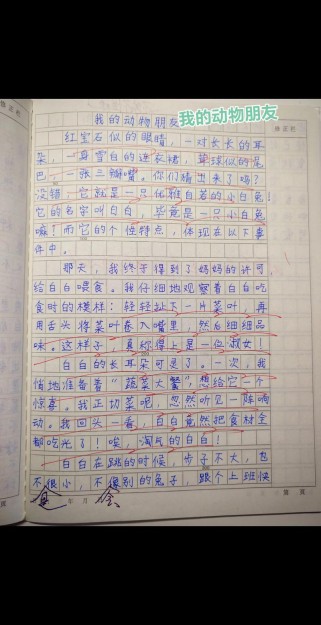 我的动物朋友
我的动物朋友
红宝石似的眼睛，一对长长的耳
朵，一身雪白的连衣裙，草球似的尾
巴，一张三瓣嘴。你们猜出来了吗？
没错，它就是一只优雅自若的小白兔！
它的名字叫白白，毕竟是一只小白兔
嘛！而它的个性特点，体现在以下事
件中。
那天，我终于得到了妈妈的许可，
给白白喂食。我仔细地观察着白白吃
食时的模样：轻轻扯下一片菜叶，再
用舌头将菜叶卷入嘴里，然后细细品
味。这样子，真称得上是一位淑女！
白白的长耳朵可灵了。一次，我
悄悄地准备着“蔬菜大餐”想给它一个
惊喜。我正切菜呢，忽然听见一阵响
动。我回头一看，白白竟然把食材全
都吃光了！唉，淘气的白白！
白白在跳的时候，步子不大，也
不很小，不像别的兔子，跟个上班快
年 月